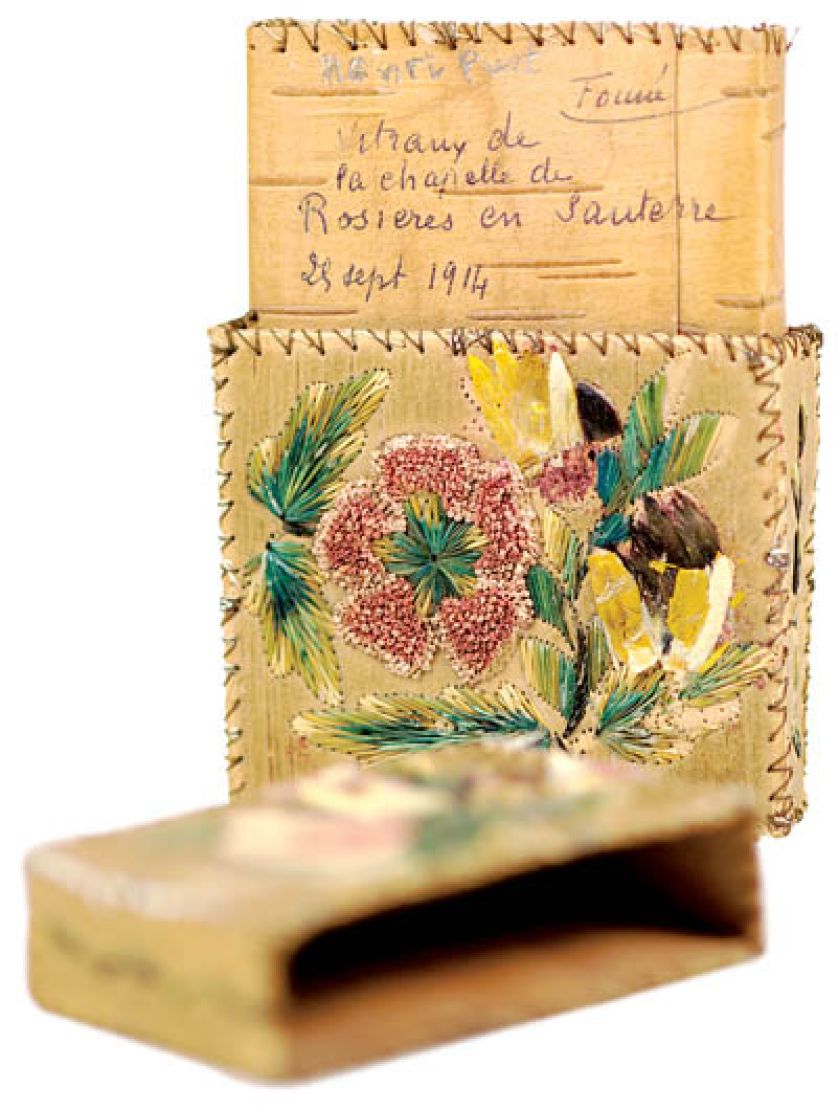 Henri
Fourré
Vitraux de
la chapelle de
Rosieres en Santerre
25 sept 1914